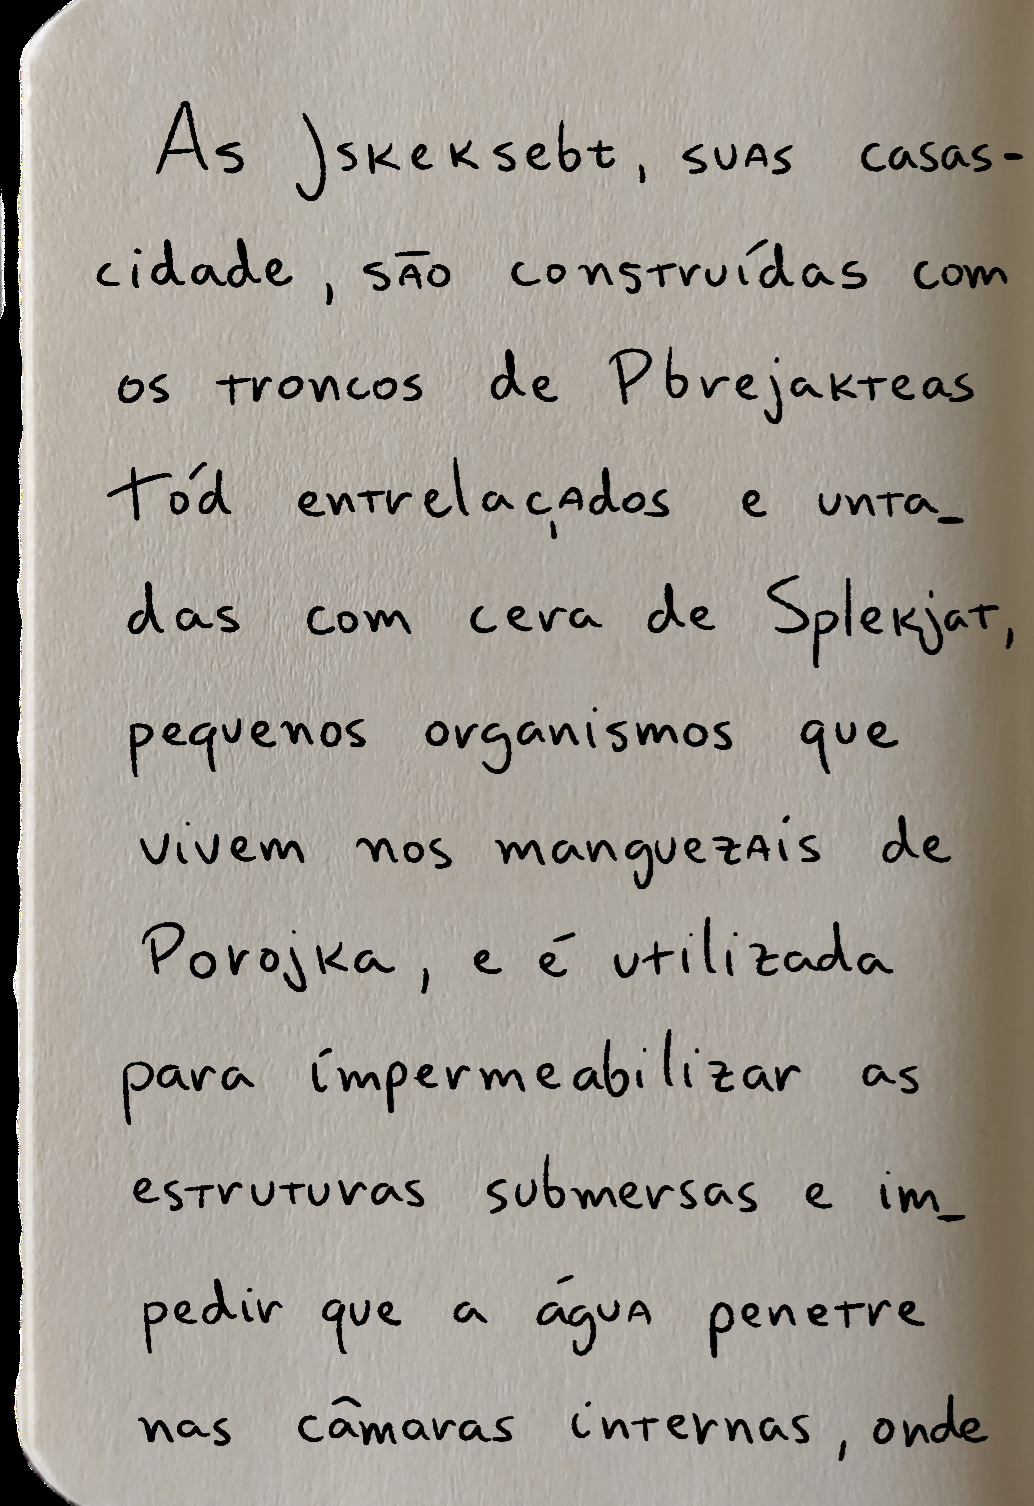 As Jskeksebt, suas casas-
cidade, são construídas com
os troncos de Pbrejakteas
Tód entrelaçados e unta_
das com cera de Splekjat,
pequenos organismos que
vivem nos manguezais de
Porojka, e é utilizada
para impermeabilizar as
estruturas submersas e im_
pedir que a água penetre
nas câmaras internas, onde